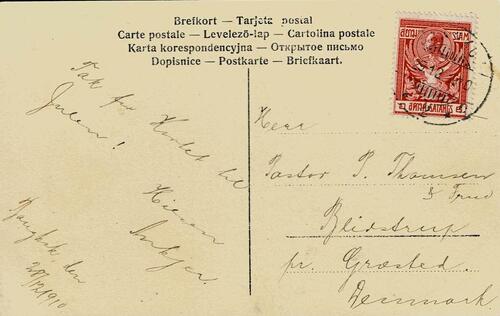 Brefkort — Tarjeta postal
Carte postale — Levelező-lap — Cartolina postale
Karta korespondencyjna — Открытое письмо
Dopisnice — Postkarte — Briefkaart.
Tak for Kortet til
Julen!
Hilsen
Bangkok, den
28/12 1910
Herr
Pastor P. Thomsen
& Frue
Blidstrup
pr. Græsted.
Denmark.
SIAM